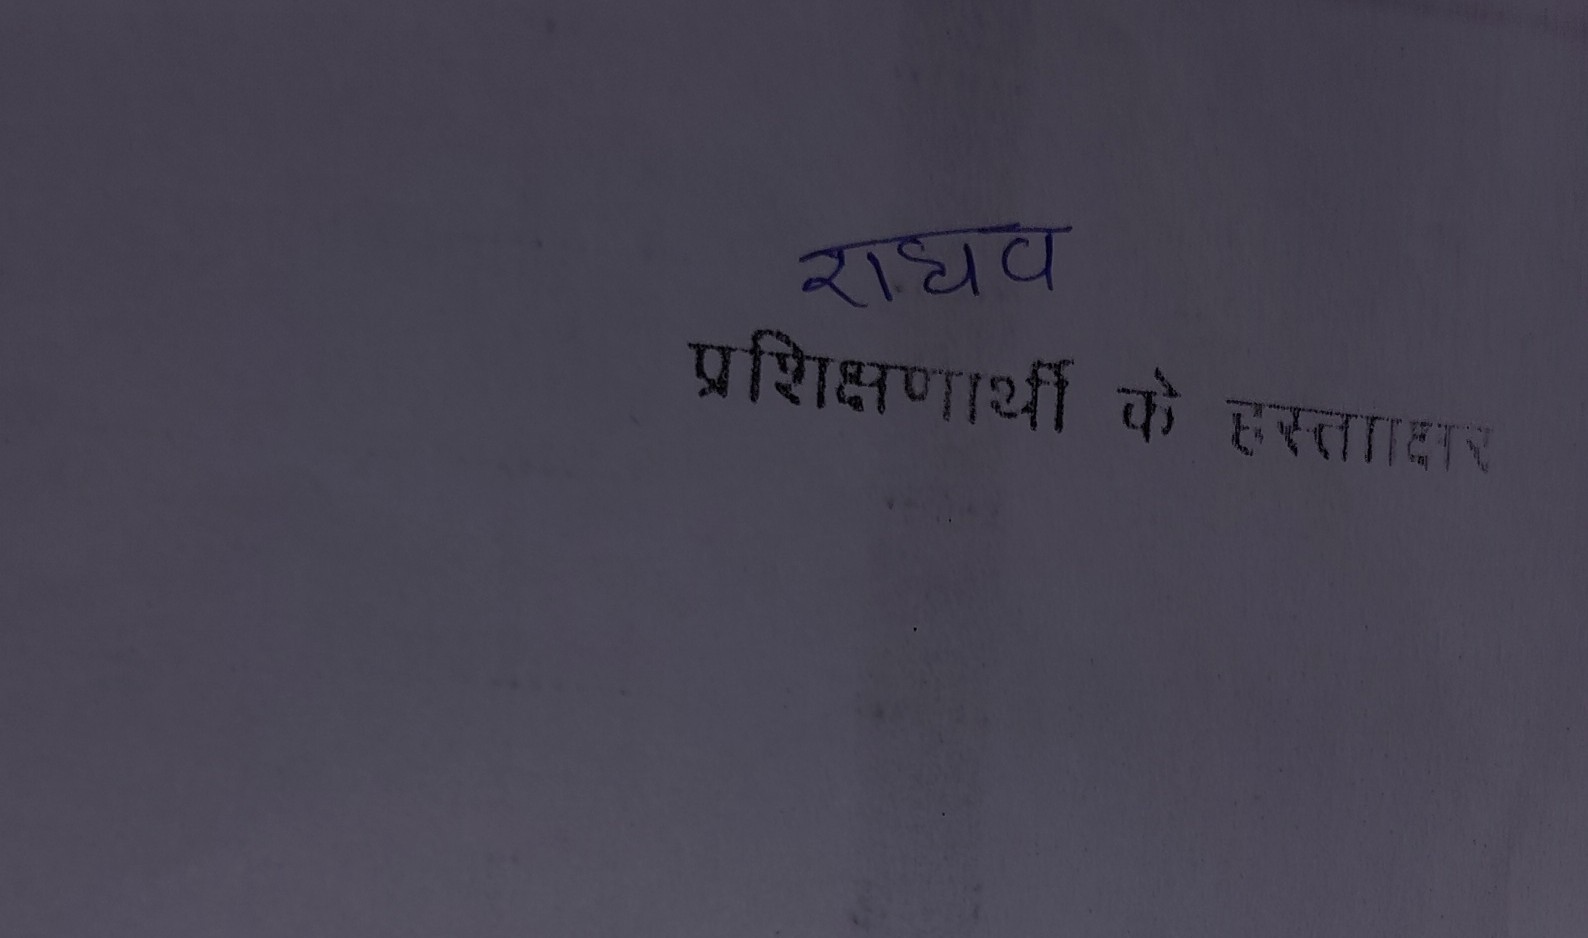 राघव
प्रशिक्षणार्थी के हस्ताक्षर